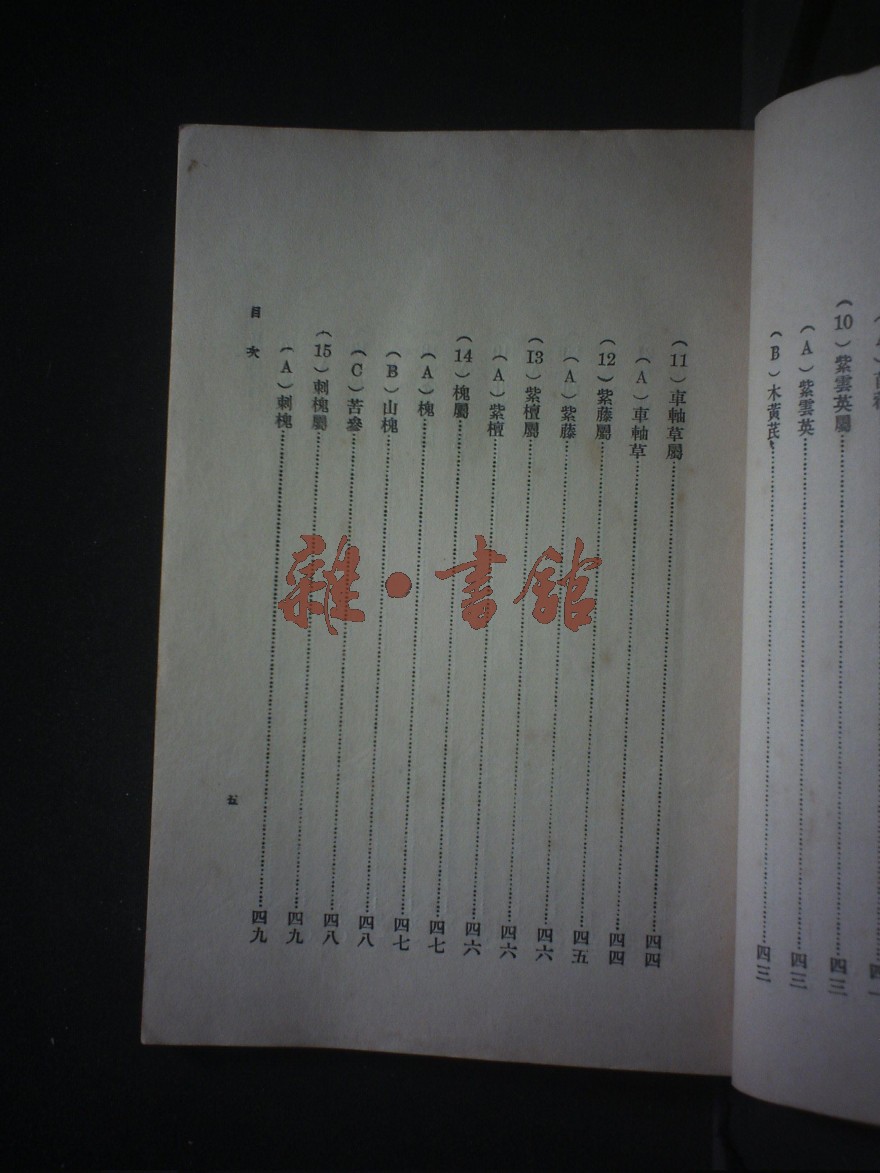 (10)紫雲英屬……四三
(A)紫雲英……四三
(B)木黃芪……四三
(11)車軸草屬……四四
(A)車軸草……四四
(12)紫藤屬……四五
(A)紫藤……四六
(13)紫檀屬……四六
(A)紫檀……四六
(14)槐屬……四七
(A)槐……四七
(B)山槐……四八
(C)苦參……四八
(15)刺槐屬……四九
(A)刺槐……四九
目次
五
雜·書館